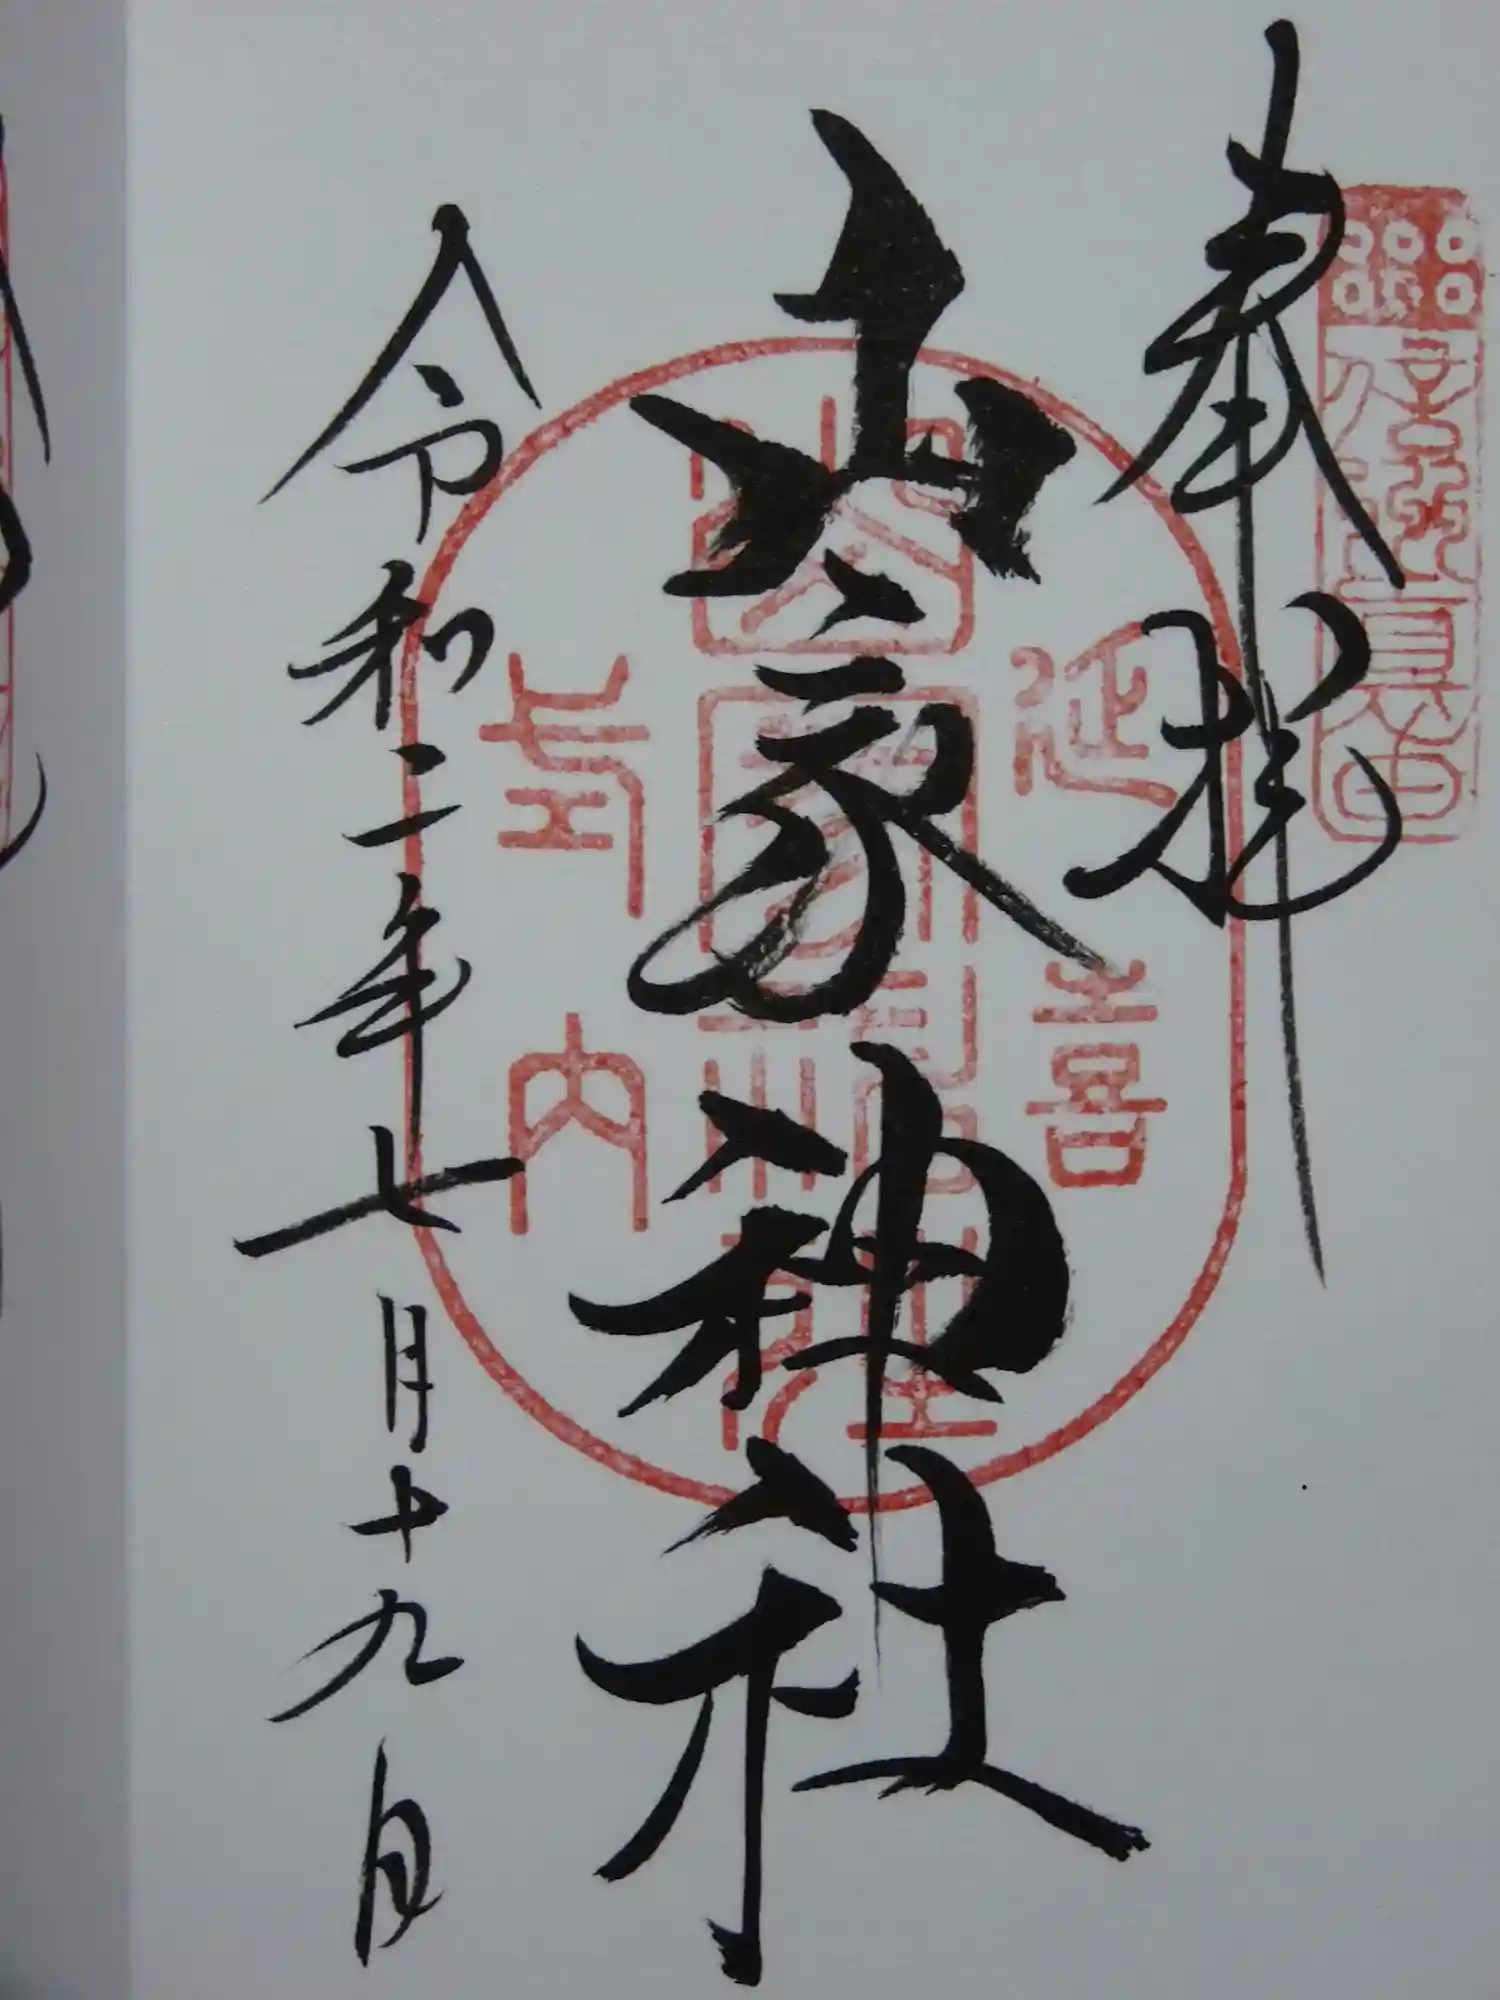 奉拝
信州真田
山家神社
延喜
式内
山家神社
令和二年七月十九日